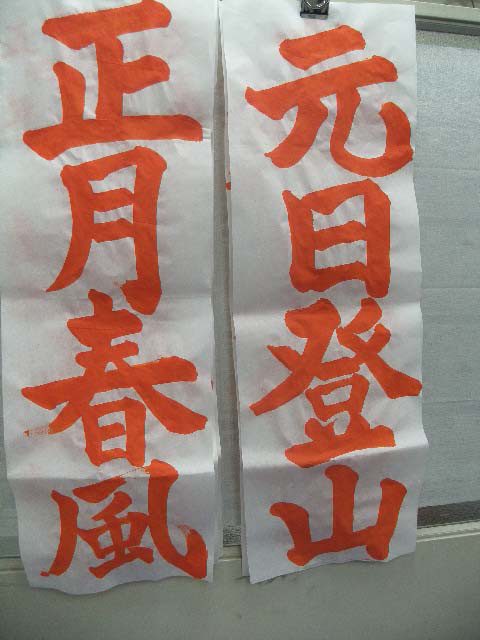 元日登山
正月春風